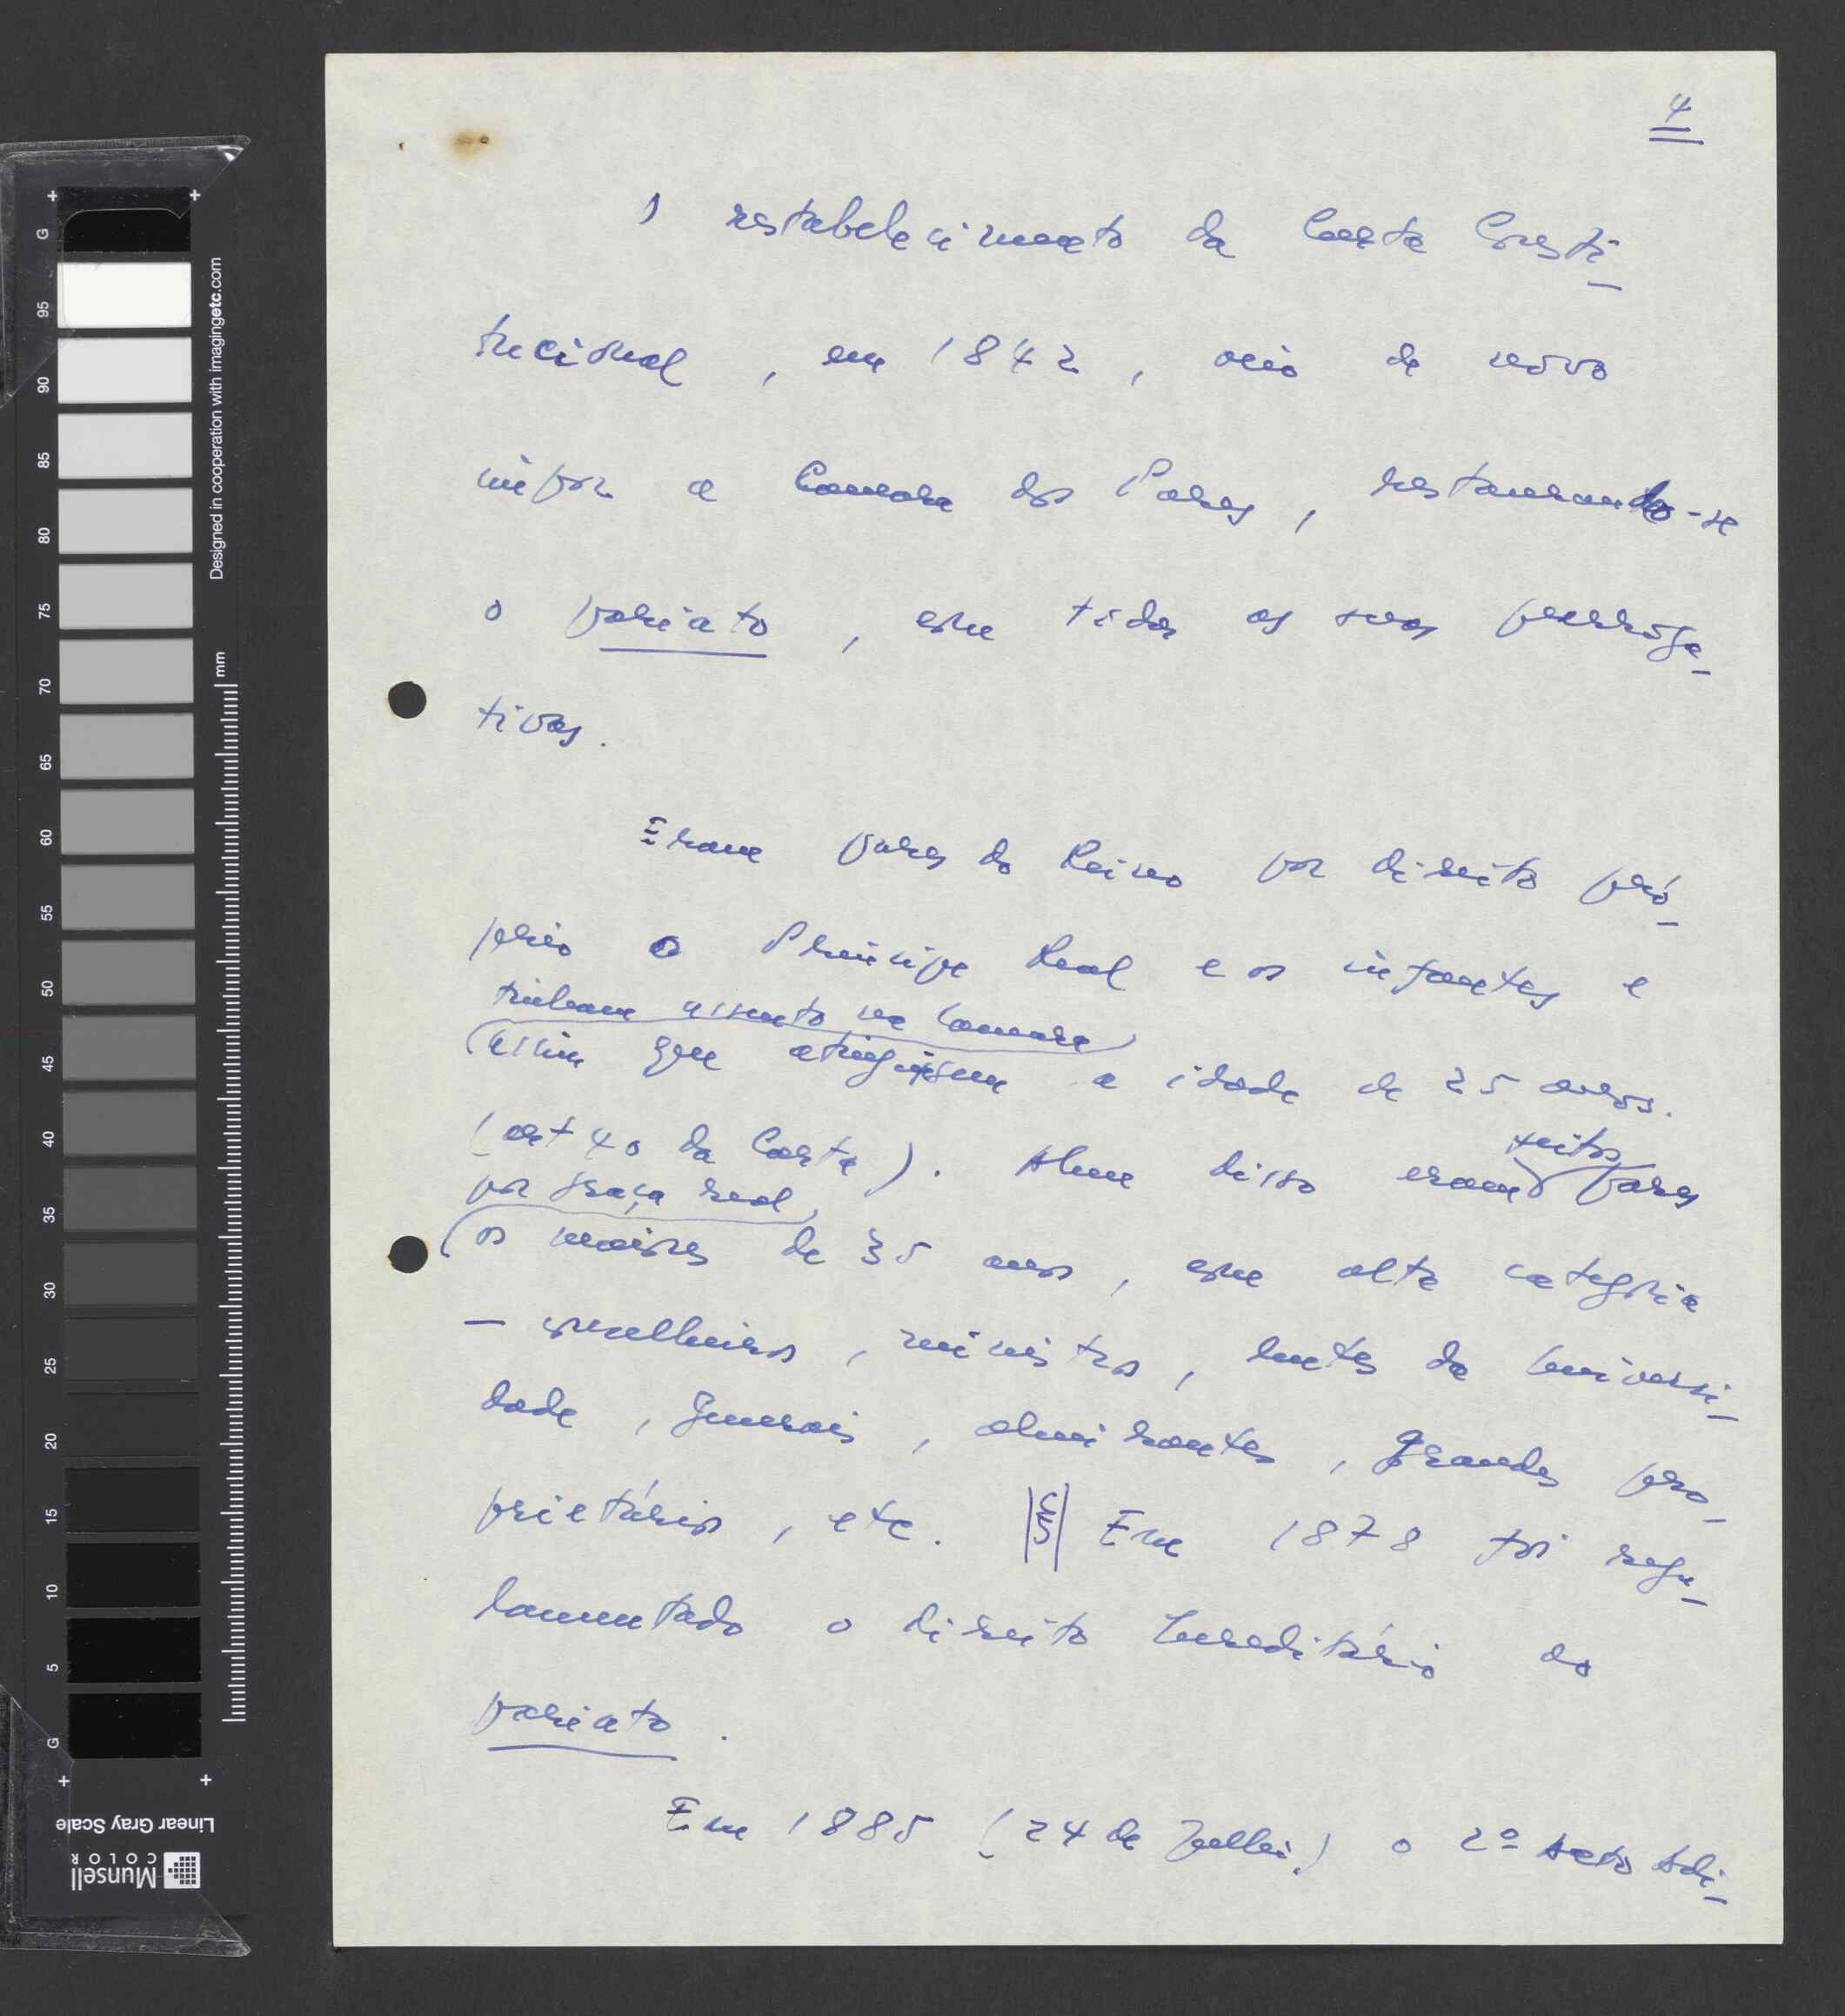 4
O restabelecimento da Carta Consti-
tucional, em 1842, veio de novo
impor a Camara dos Pares, restaurando-se
o pariato, com todas as suas prerroga-
tivas.
Eram pares do Reino por direito pró-
prio o Principe Real e os infantes e
tinham assento na Camara
assim que atingissem a idade de 25 anos.
(art 40 da Carta). Alem disso eram feitos pares
por graça real
os maiores de 35 anos, com alta categoria
— conselheiros, ministros, lentes da Universi-
dade, generais, almirantes, grandes pro-
prietários, etc. Em 1878 foi regu-
lamentado o direito hereditário do
pariato.
Em 1885 (24 de Julho) o 2º Acto Adi-
G 95 90 85 80 75 70 65 60 55 50 45 40 35 30 25 20 15 10 5 G
Designed in cooperation with imagingetc.com
mm
Linear Gray Scale
Munsell
COLOR